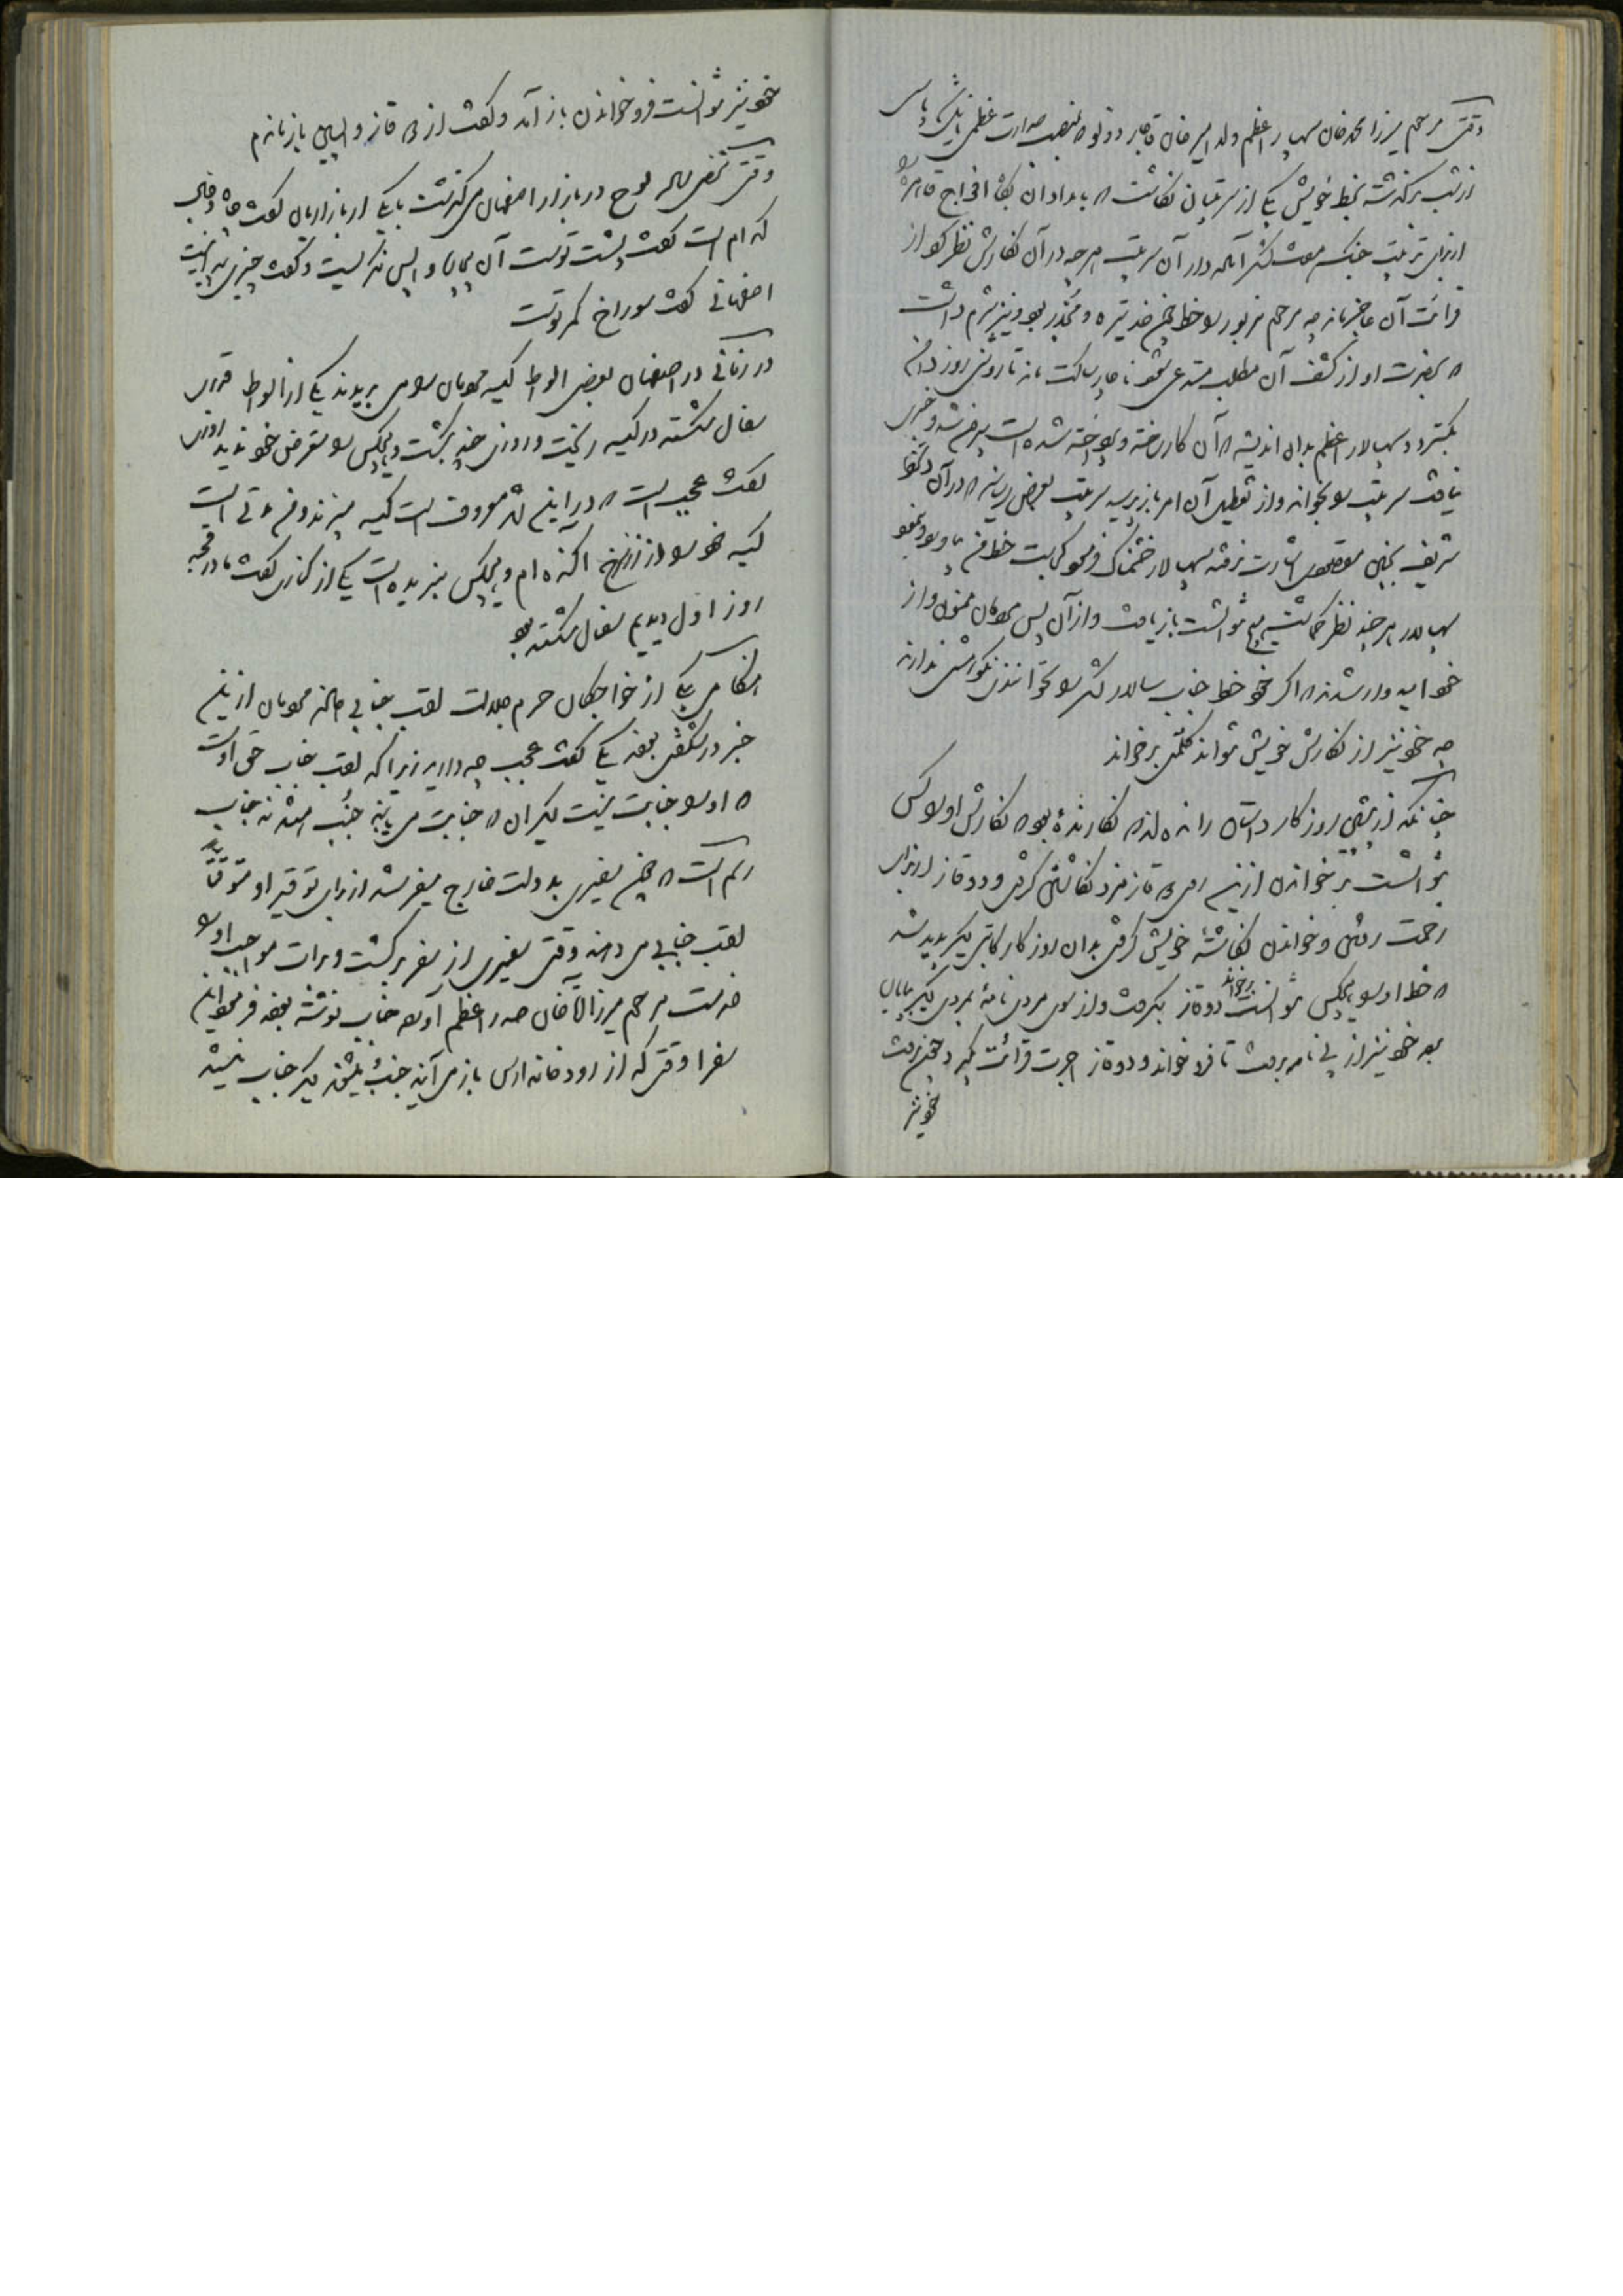 وقتی مرحوم میرزا محمد خان سپهسالار اعظم ولد امیر خان قاجار دولو که بمنصب صدارت عظمی نایل شد پاسی
از شب برگذشته بخط خویش بیکی از سرتیبان نگاشت که بامدادان بگاه افواج قاهره را
از برای ترتیب جنگ مشق لشکر آماده دار آن سرتیپ هر چه در آن نگارش نظر کرد از
قرائت آن عاجز ماند چه مرحوم مزبور را خط چون خود تیره و مکدر بود و نیز شرم داشت
که بحضرت او از کشف آن مطلب مستدعی شود ناچار ساکت ماند تا روشنی روز دامن
بگسترد و سپهسالار اعظم بدان اندیشه که آن کار ساخته و پرداخته شده است بیرون شد و خبری
نیافت سرتیپ را بخواند و از تعطیل آن امر باز پرسید سرتیپ بعرض رسانید که در آن دستخط
شریف بچنین مقصودی اشارت نرفته سپهسالار خشمناک فرمود کجاست خط من بیاورد و بنمود
سپهسالار هر چند نظر گماشت هیچ نتوانست باز یافت و از آن پس همگان ممنول و از
خود امیدوار شدند که اگر خود خط جناب سالار لشکر را نتوانند نکوهش ندارند
چه خود نیز از نگارش خویش نتواند کلمتی برخواند
چنانکه از پیشین روزگار داستان رانده اند که نگارنده بود که نگارش او را کس
نتوانست بر خواندن ازین روی ده قاز مزد نگاشتن گرفتی و دو قاز از برای
زحمت رفتن و خواندن نگاشته خویش گرفتی بدان روزگار کاتبی دیگر پدید شد
که خط او را هیچکس نتوانست برخواند دو قاز بگرفت و از سوی مردی نامه بمردی دیگر بپایان
برد خود نیز از پی نامه برفت تا فرو خواند و دو قاز اجرت قرائت گیرد چون برفت
خود نیز
خود نیز نتوانست فرو خواندن باز آمد و گفت از ده قاز و اسپابی باز ماندم
وقتی شخصی ساده لوح در بازار اصفهان می گذشت با یکی از بازاریان گفت راه فلان
کدام است گفت پشت تست آن بیچاره واپس نگریست و گفت چیزی پدید نیست
اصفهانی گفت سوراخ کمر تست
در زمانی در اصفهان بعضی الواط کیسه مردمان را می بریدند یکی از الواط قدری
سفال شکسته در کیسه ریخت و روزی چند بگشت و هیچکس را متعرض خود ندید روزی
گفت عجیب است که در این شهر معروف است کیسه میبرند و من مدتی است
کیسه خود را از زر سرخ آکنده ام و هیچکس نبریده است یکی از کناری گفت مادر قحبه
روز اول دیدیم سفال شکسته بود
هنگامی یکی از خواجگان حرم جلالت لقب جنابی یافته مردمان از این
خبر در شگفتی بودند یکی گفت عجب چه دارید زیرا که لقب جناب حق اوست
که او را جنابت نیست دیگران که جنابت می یابند جنب هستند نه جناب
رسم است که چون سفیری بدولت خارج میفرستند از برای توقیر او موقتاً
لقب جنابی می دهند وقتی سفیری از سفر برگشت و برات مواجب او را
خدمت مرحوم میرزا آقا خان صدر اعظم آورده جناب نوشته بودند فرمود این
سفرا وقتی که از رودخانه ارس باز می آیند جنب میشوند دیگر جناب نیستند